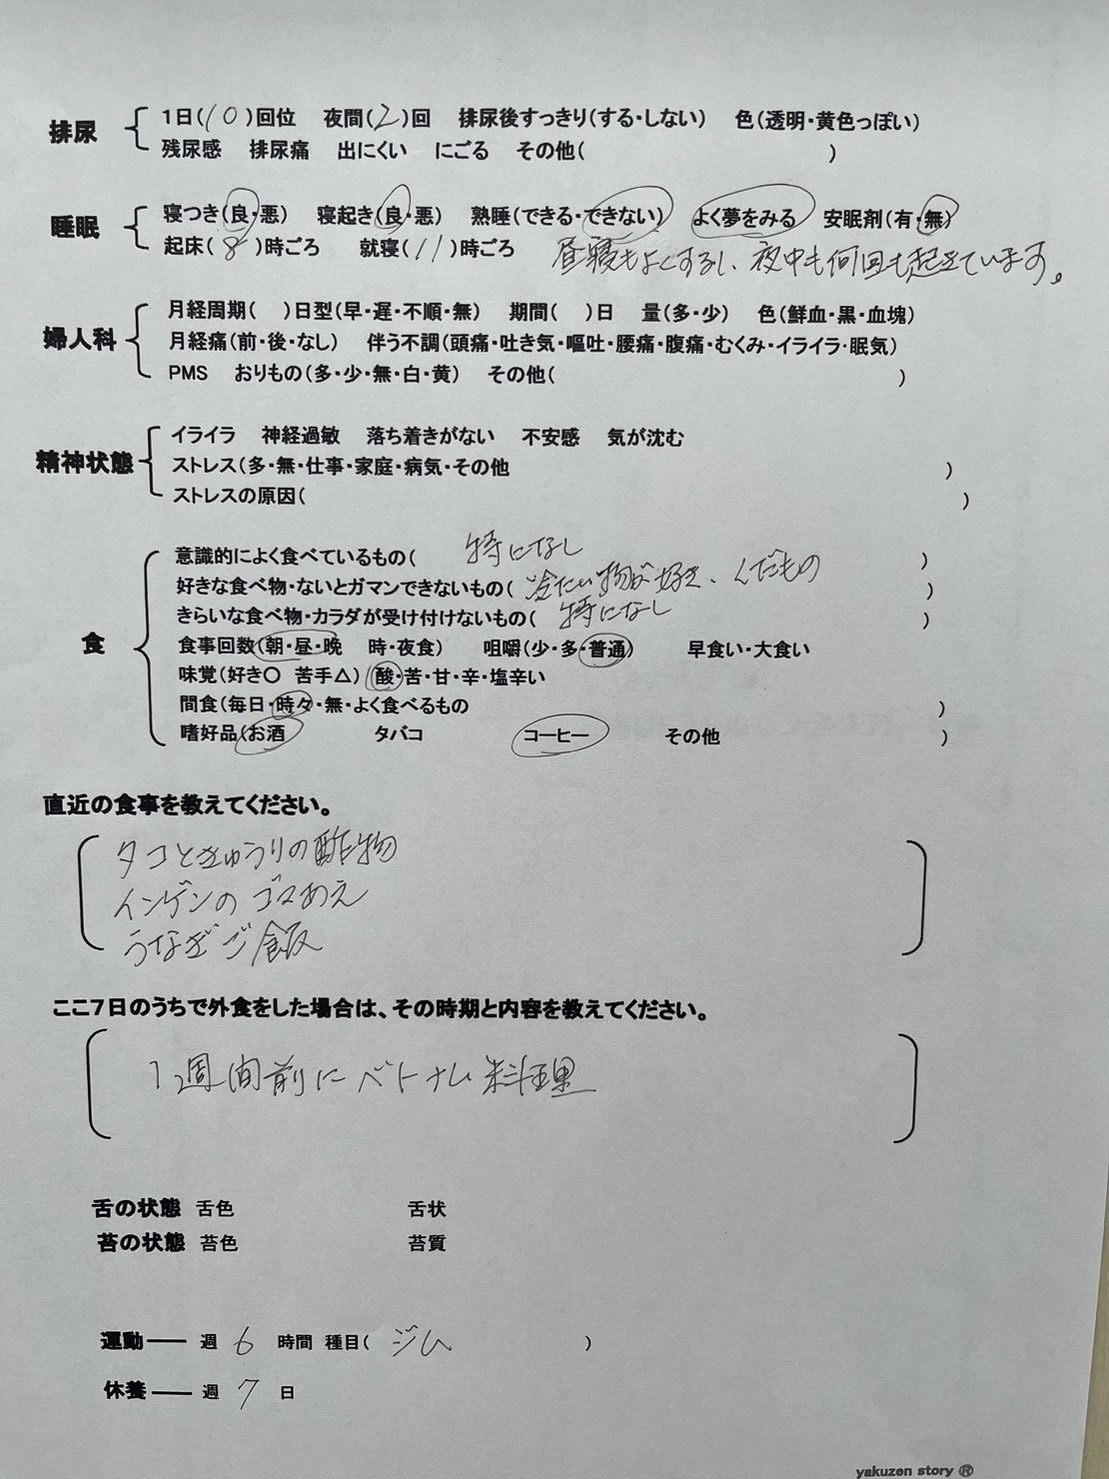 排尿
1日(10)回位 夜間(2)回 排尿後すっきり(する・しない) 色(透明・黄色っぽい)
残尿感 排尿痛 出にくい にごる その他( )
睡眠
寝つき(良・悪) 寝起き(良・悪) 熟睡(できる・できない) よく夢をみる 安眠剤(有・無)
起床(8)時ごろ 就寝(11)時ごろ 昼寝もよくするし、夜中も何回も起きています。
婦人科
月経周期( )日型(早・遅・不順・無) 期間( )日 量(多・少) 色(鮮血・黒・血塊)
月経痛(前・後・なし) 伴う不調(頭痛・吐き気・嘔吐・腰痛・腹痛・むくみ・イライラ・眠気)
PMS おりもの(多・少・無・白・黄) その他( )
精神状態
イライラ 神経過敏 落ち着きがない 不安感 気が沈む
ストレス(多・無・仕事・家庭・病気・その他 )
ストレスの原因( )
食
意識的によく食べているもの( 特になし )
好きな食べ物・ないとガマンできないもの( 冷たい物が好き、くだもの )
きらいな食べ物・カラダが受け付けないもの( 特になし )
食事回数(朝・昼・晩 時・夜食) 咀嚼(少・多・普通) 早食い・大食い
味覚(好き〇 苦手△)(酸・苦・甘・辛・塩辛い
間食(毎日・時々・無・よく食べるもの )
嗜好品(お酒 タバコ コーヒー その他 )
直近の食事を教えてください。
タコときゅうりの酢物
インゲンのゴマあえ
うなぎご飯
ここ7日のうちで外食をした場合は、その時期と内容を教えてください。
1週間前にベトナム料理
舌の状態 舌色 舌状
苔の状態 苔色 苔質
運動── 週 6 時間 種目( ジム )
休養── 週 7 日
yakuzen story ®